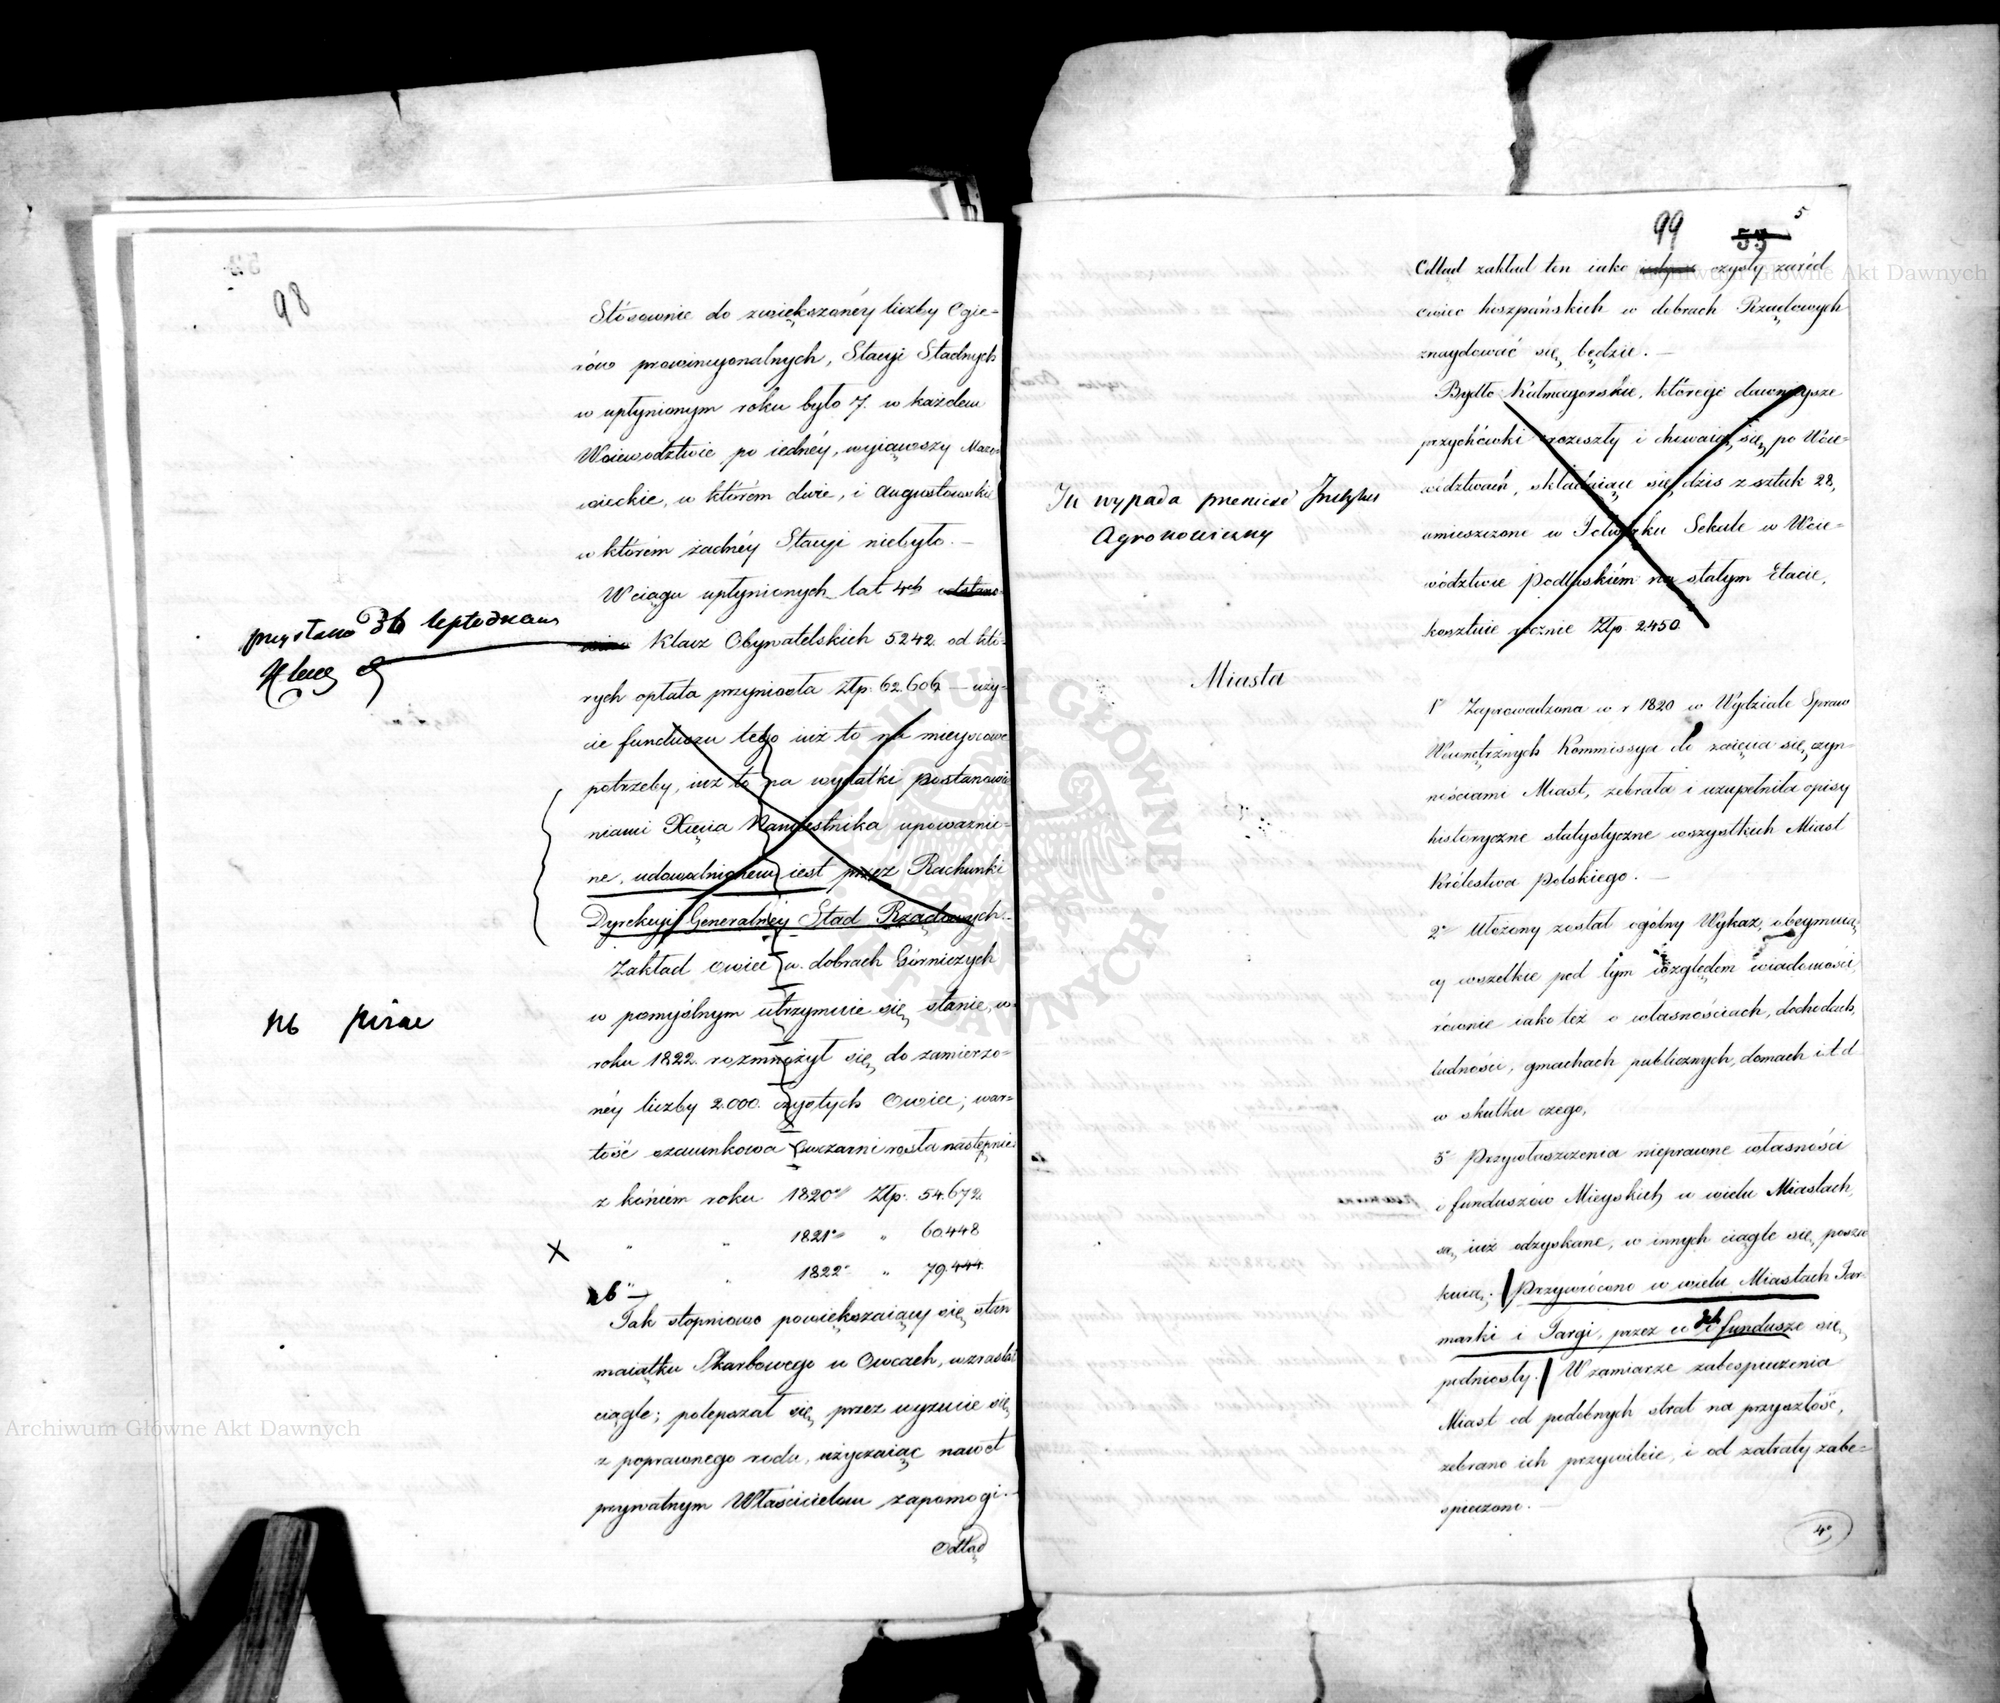 98
Stósownie do zwiększonéy liczby Ogie-
rów prowincyonalnych, Stacyi Stadnych
w upłynionym roku było 7. w każdem
Woiewodztwie po iednéy, wyiąwszy Mazo-
wieckie, w którém dwie, i Augustowskie
w którém żadnéy Stacyi niebyło. —
W ciągu upłynionych lat 4ch
Klacz Obywatelskich 5242. od któ-
rych opłata przyniosła Złp. 62.606 — uży-
cie funduszu tego iuż to na mieyscowe
potrzeby, iuż to na wydatki postanowie
niami Xięcia Namiestnika upoważnio-
ne, udowodnionem iest przez Rachunki
Dyrekcyi Generalnéy Stad Rządowych. —
Zakład owiec w dobrach Górniczych
w pomyślnym utrzymuie się stanie, w
roku 1822. rozmnożył się do zamierzo-
néy liczby 2.000. czystych Owiec; war-
tość szacunkowa Owczarni rosła następnie:
z końcem roku 1820° Złp. 54.672.
" " 1821° " 60.448
" " 1822° " 79.444.
Tak stopniowo powiększaiący się stan
maiątku Skarbowego w Owcach, wzrastał
ciągle; polepszał się przez wyzucie się
z poprawnego rodu, użyczaiąc nawet
prywatnym Właścicielom zapomogi. —
Odtąd
przystano
Klaczy
Nb pisać
X
Nb
99
59
5
Odtąd zakład ten iako czysty zaród
owiec hiszpańskich w dobrach Rządowych
znaydować się będzie. —
Bydło Kałmagorskie, którego dawnieysze
przychówki rozeszły i chowaią się po Woie-
wództwach, składaiąc się dziś z sztuk 28,
umieszczone w Folwarku Sekule w Woie-
wództwie Podlaskiém na stałym Etacie,
kosztuie rocznie Złp. 2.450.
Tu wypada przenieść Instytut
Agronomiczny
Miasta
1° Zaprowadzona w r 1820 w Wydziale Spraw
Wewnętrznych Kommissya do zaięcia się czyn-
nościami Miast, zebrała i uzupełniła opisy
historyczne statystyczne wszystkich Miast
Królestwa Polskiego. —
2° Ułożony został ogólny Wykaz, obeymuią-
cy wszelkie pod tym względem wiadomości,
równie iako też o własnościach, dochodach,
ludności, gmachach publicznych, domach i t d
w skutku czego,
3° Przywłaszczenia nieprawne własności
i funduszów Mieyskich w wielu Miastach,
są iuż odzyskane, w innych ciągle się poszu
kuią. Przywrócono w wielu Miastach Jar-
marki i Targi, przez co ich fundusze się
podniosły. W zamiarze zabespieczenia
Miast od podobnych strat na przyszłość,
zebrano ich przywileie, i od zatraty zabe-
spieczono. —
4°
Archiwum Główne Akt Dawnych
Archiwum Główne Akt Dawnych
ARCHIWUM GŁÓWNE AKT DAWNYCH